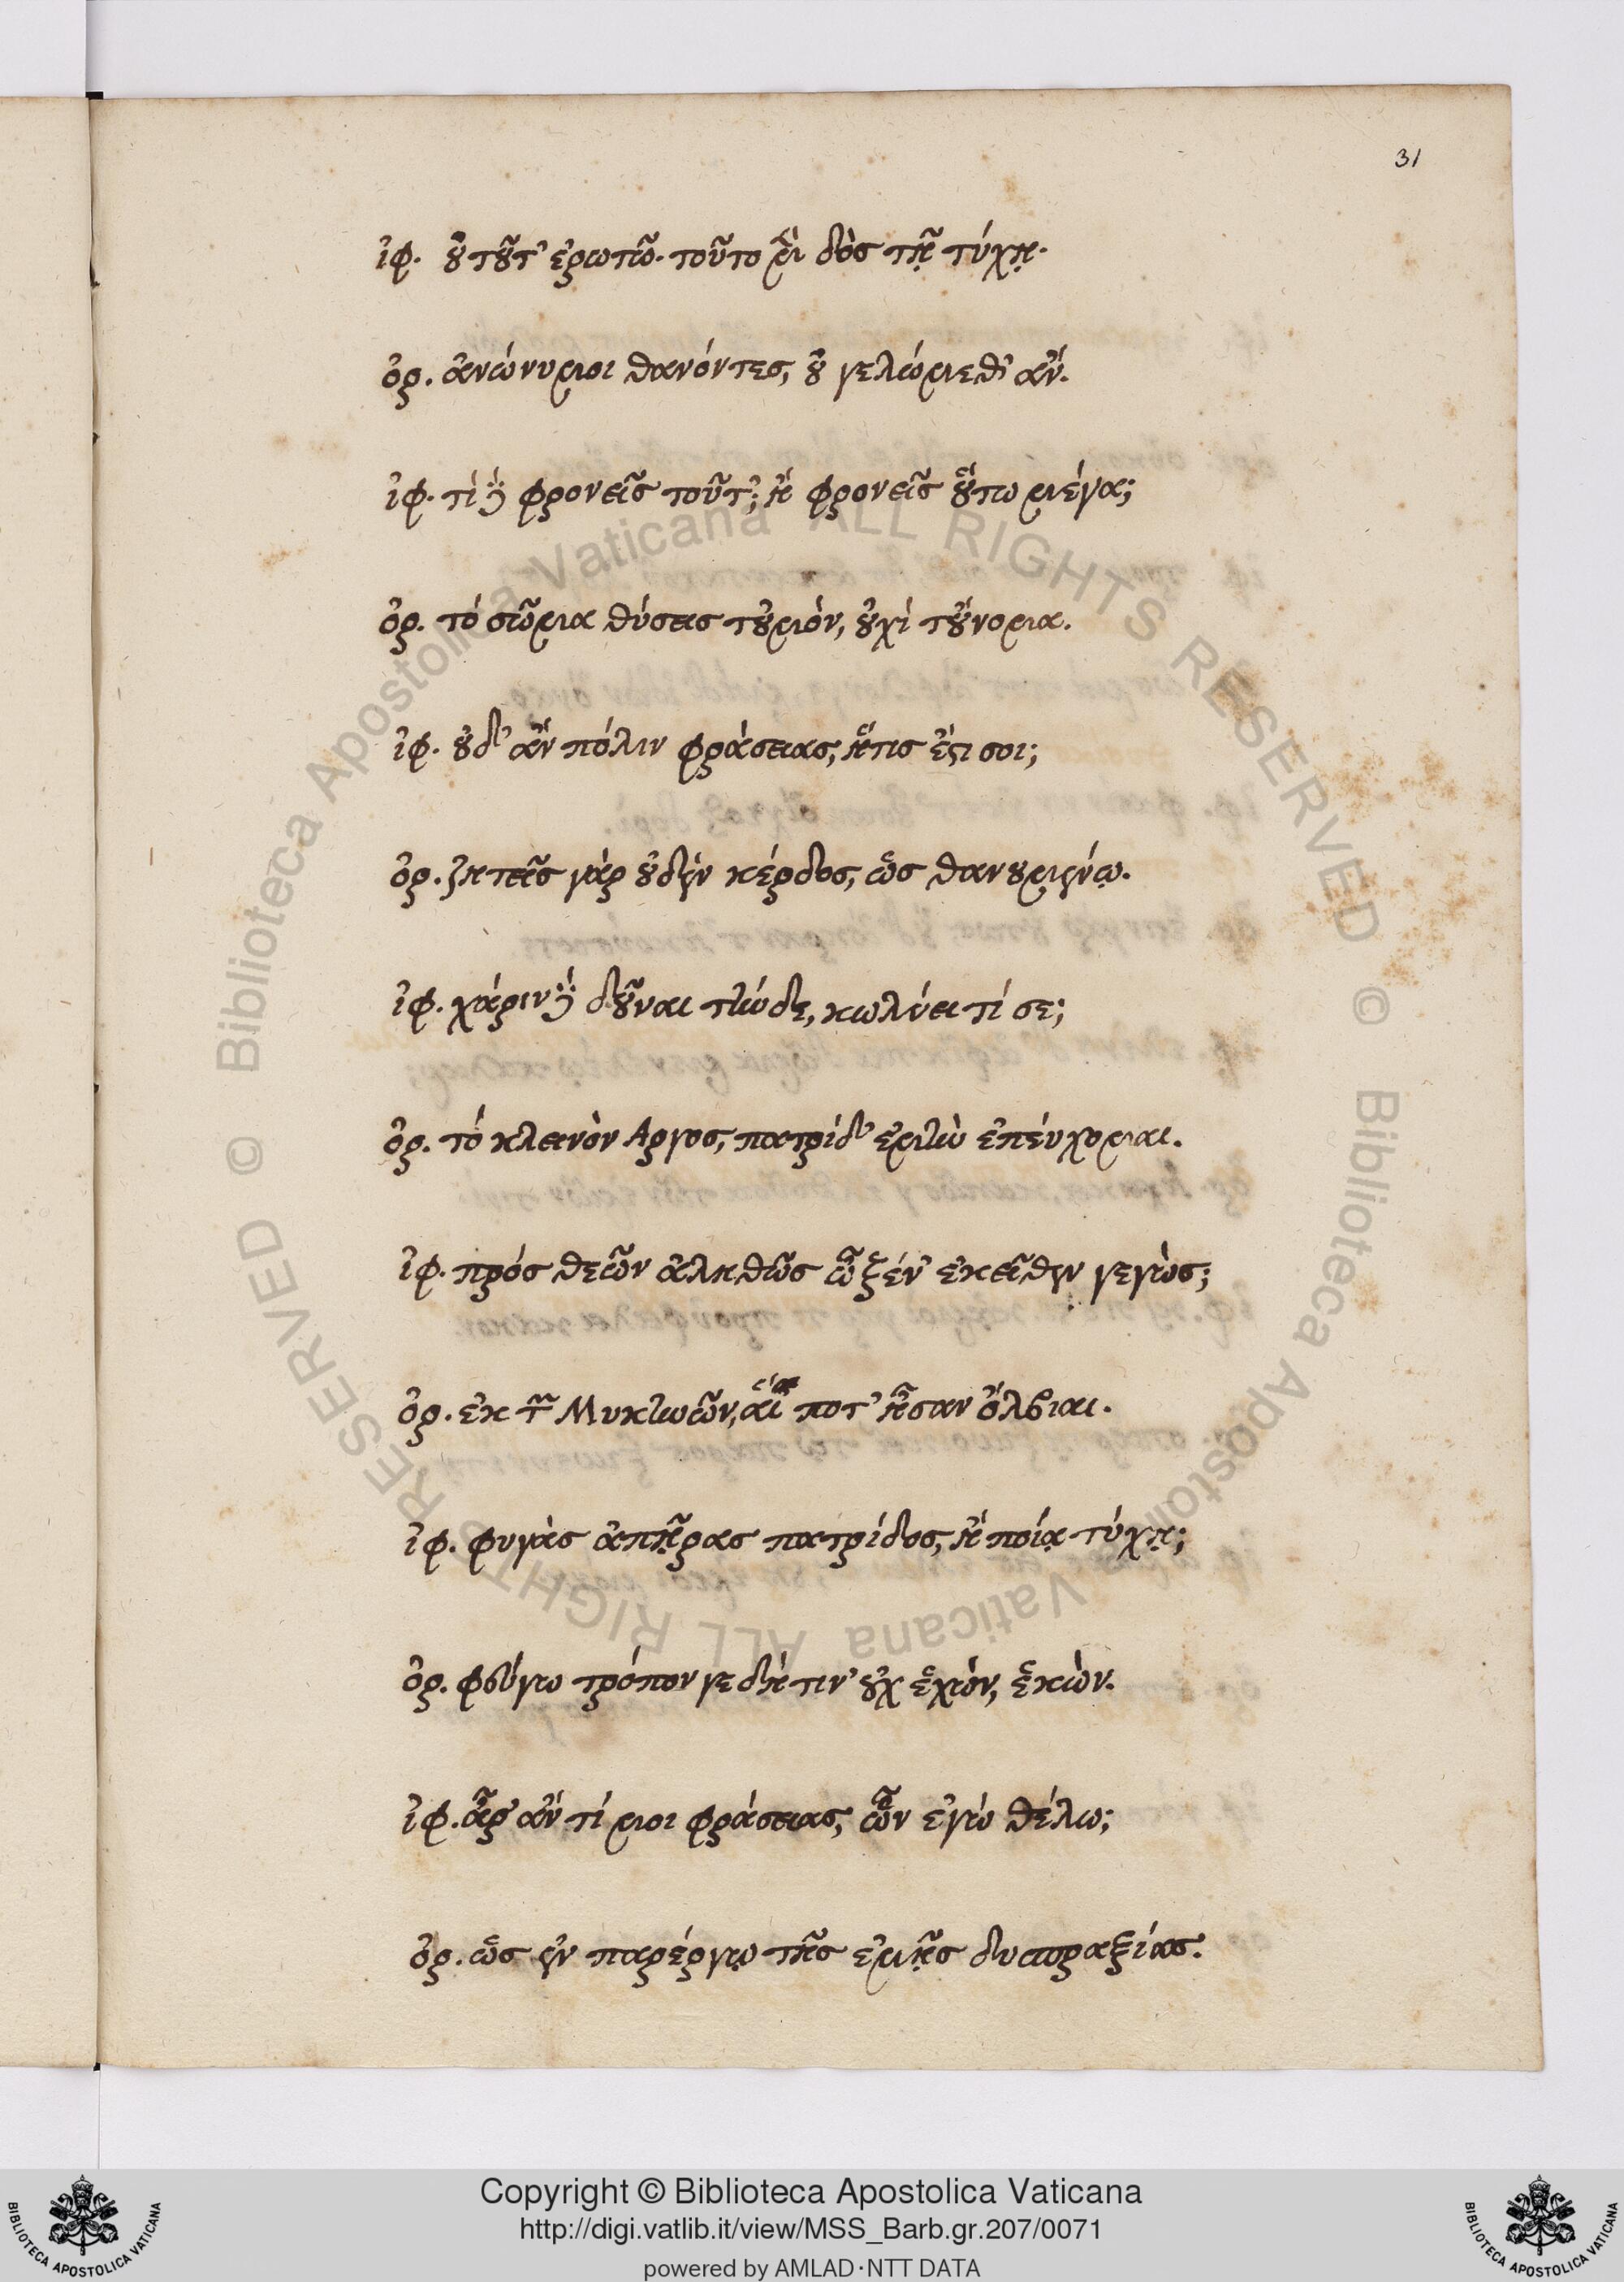 31
ἰφ. οὐ τοῦτ' ἐρωτῶ. τοῦτο μὲν δὸς τῇ τύχῃ.
ὀρ. ἀνώνυμοι θανόντες, οὐ γελώμεθ' ἄν.
ἰφ. τί δὲ φρονεῖς τοῦτ'; ἢ φρονεῖς οὕτω μέγα;
ὀρ. τό σῶμα θύσεις τοὐμὸν, οὐχί τοὔνομα.
ἰφ. οὐδ' ἂν πόλιν φράσειας, ἥτις ἐστί σοι;
ὀρ. ζητεῖς γὰρ οὐδὲν κέρδος, ὡς θανουμένῳ.
ἰφ. χάριν δὲ δοῦναι τήνδε, κωλύει τί σε;
ὀρ. τό κλεινὸν Αργος, πατρίδ' ἐμὴν ἐπεύχομαι.
ἰφ. πρός θεῶν ἀληθῶς ὦ ξέν' ἐκεῖθεν γεγώς;
ὀρ. ἐκ τῶν Μυκηνῶν, αἵ ποτ' ἦσαν ὄλβιαι.
ἰφ. φυγὰς ἀπῇρας πατρίδος, ἢ ποίᾳ τύχῃ;
ὀρ. φεύγω τρόπον γε δή τιν' οὐχ ἑκὼν, ἑκὼν.
ἰφ. ἆρ' ἄν τί μοι φράσειας, ὧν ἐγὼ θέλω;
ὀρ. ὡς ἐν παρέργῳ τῆς ἐμῆς δυσπραξίας.
© Biblioteca Apostolica Vaticana ALL RIGHTS RESERVED
© Biblioteca Apostolica Vaticana ALL RIGHTS RESERVED
BIBLIOTECA APOSTOLICA VATICANA
Copyright © Biblioteca Apostolica Vaticana
http://digi.vatlib.it/view/MSS_Barb.gr.207/0071
powered by AMLAD·NTT DATA
BIBLIOTECA APOSTOLICA VATICANA